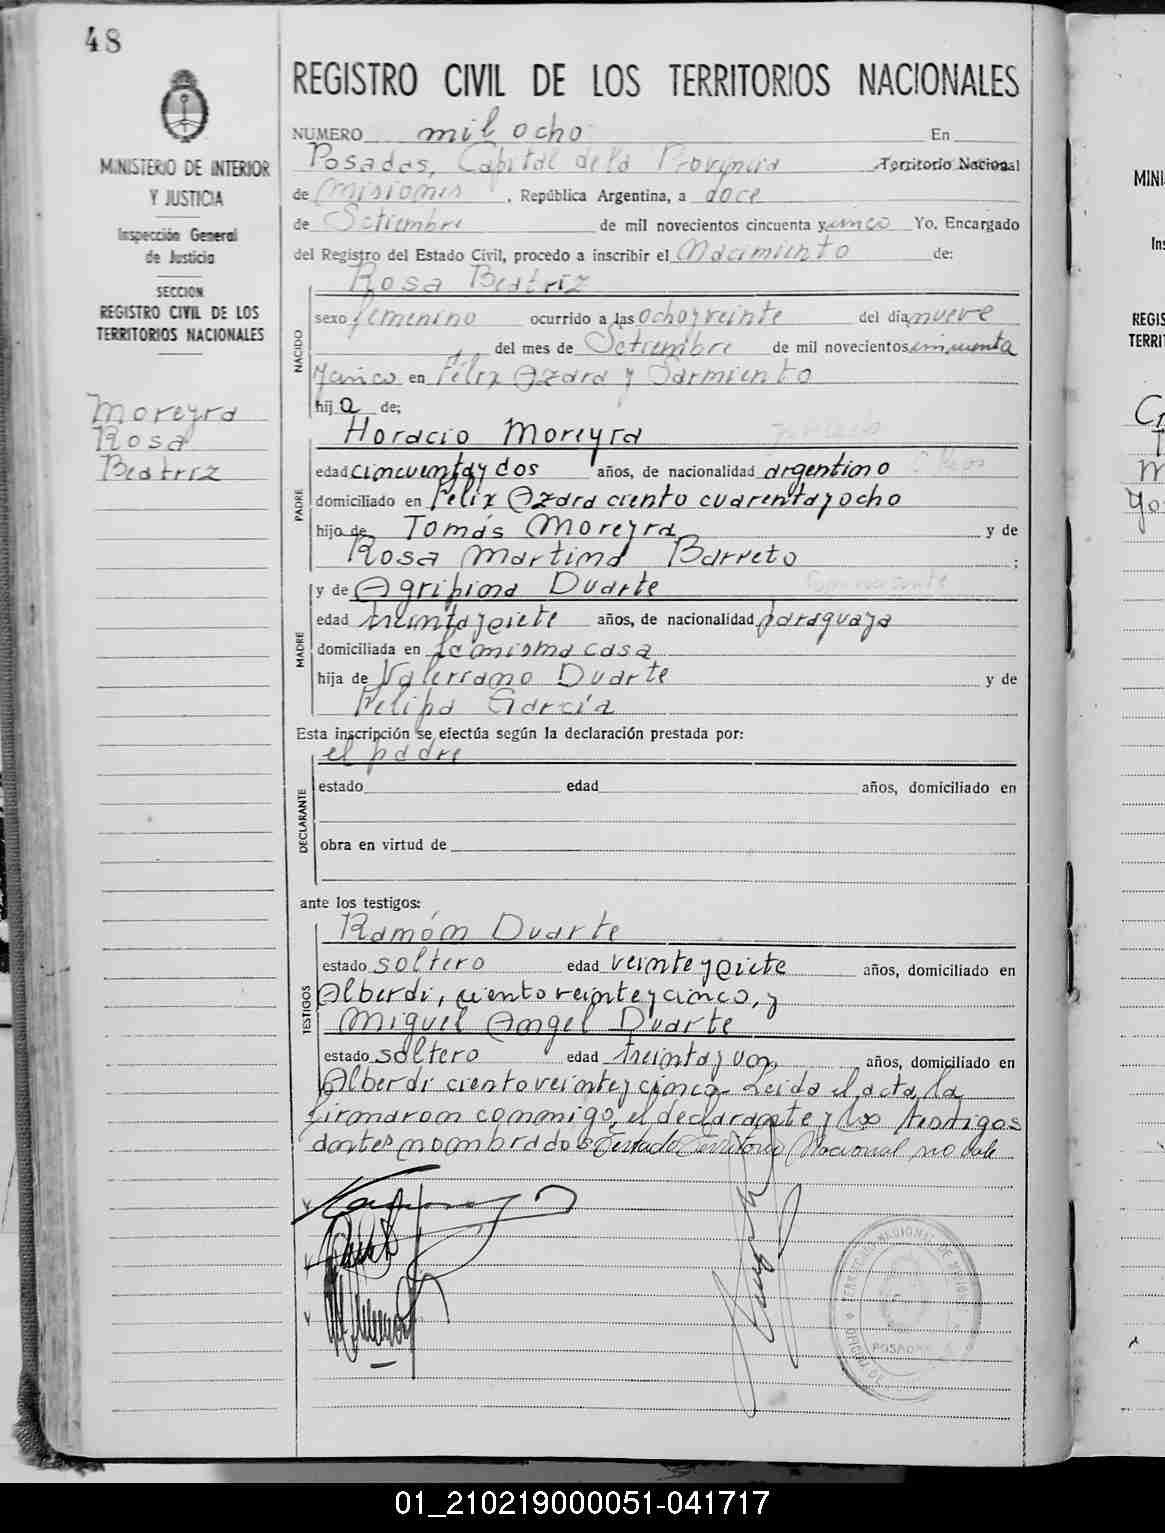 48
MINISTERIO DE INTERIOR
Y JUSTICIA
Inspección General
de Justicia
SECCION
REGISTRO CIVIL DE LOS
TERRITORIOS NACIONALES
Moreyra
Rosa
Beatriz
REGISTRO CIVIL DE LOS TERRITORIOS NACIONALES
NUMERO mil ocho En
Posadas, Capital de la Provincia Territorio Nacional
de Misiones, República Argentina, a doce
de Setiembre de mil novecientos cincuenta y cinco Yo. Encargado
del Registro del Estado Civil, procedo a inscribir el Nacimiento de:
Rosa Beatriz
NACIDO
sexo femenino ocurrido a las ocho y veinte del día nueve
del mes de Setiembre de mil novecientos cincuenta
y cinco en Félix Azara y Sarmiento
hija de;
Horacio Moreyra
PADRE
edad cincuenta y dos años, de nacionalidad argentino
domiciliado en Félix Azara ciento cuarenta y ocho
hijo de Tomás Moreyra y de
Rosa Martina Barreto ;
y de Agripina Duarte
MADRE
edad treinta y siete años, de nacionalidad paraguaya
domiciliada en la misma casa
hija de Valeriano Duarte y de
Felipa García
Esta inscripción se efectúa según la declaración prestada por:
el padre
DECLARANTE
estado edad años, domiciliado en
obra en virtud de
ante los testigos:
Ramón Duarte
TESTIGOS
estado soltero edad veinte y siete años, domiciliado en
Alberdi, ciento veinte y cinco, y
Miguel Angel Duarte
estado soltero edad treinta y uno, años, domiciliado en
Alberdi ciento veinte y cinco Leida el acta, la
firmaron conmigo, el declarante y los testigos
antes nombrados Testado Territorio Nacional no vale
TERRITORIO NACIONAL DE MISIONES
POSADAS
MINI
Ins
REGIS
TERRI
01_210219000051-041717